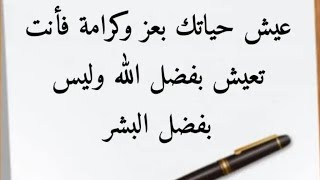 عيش حياتك بعز وكرامة فأنت
تعيش بفضل الله وليس
بفضل البشر